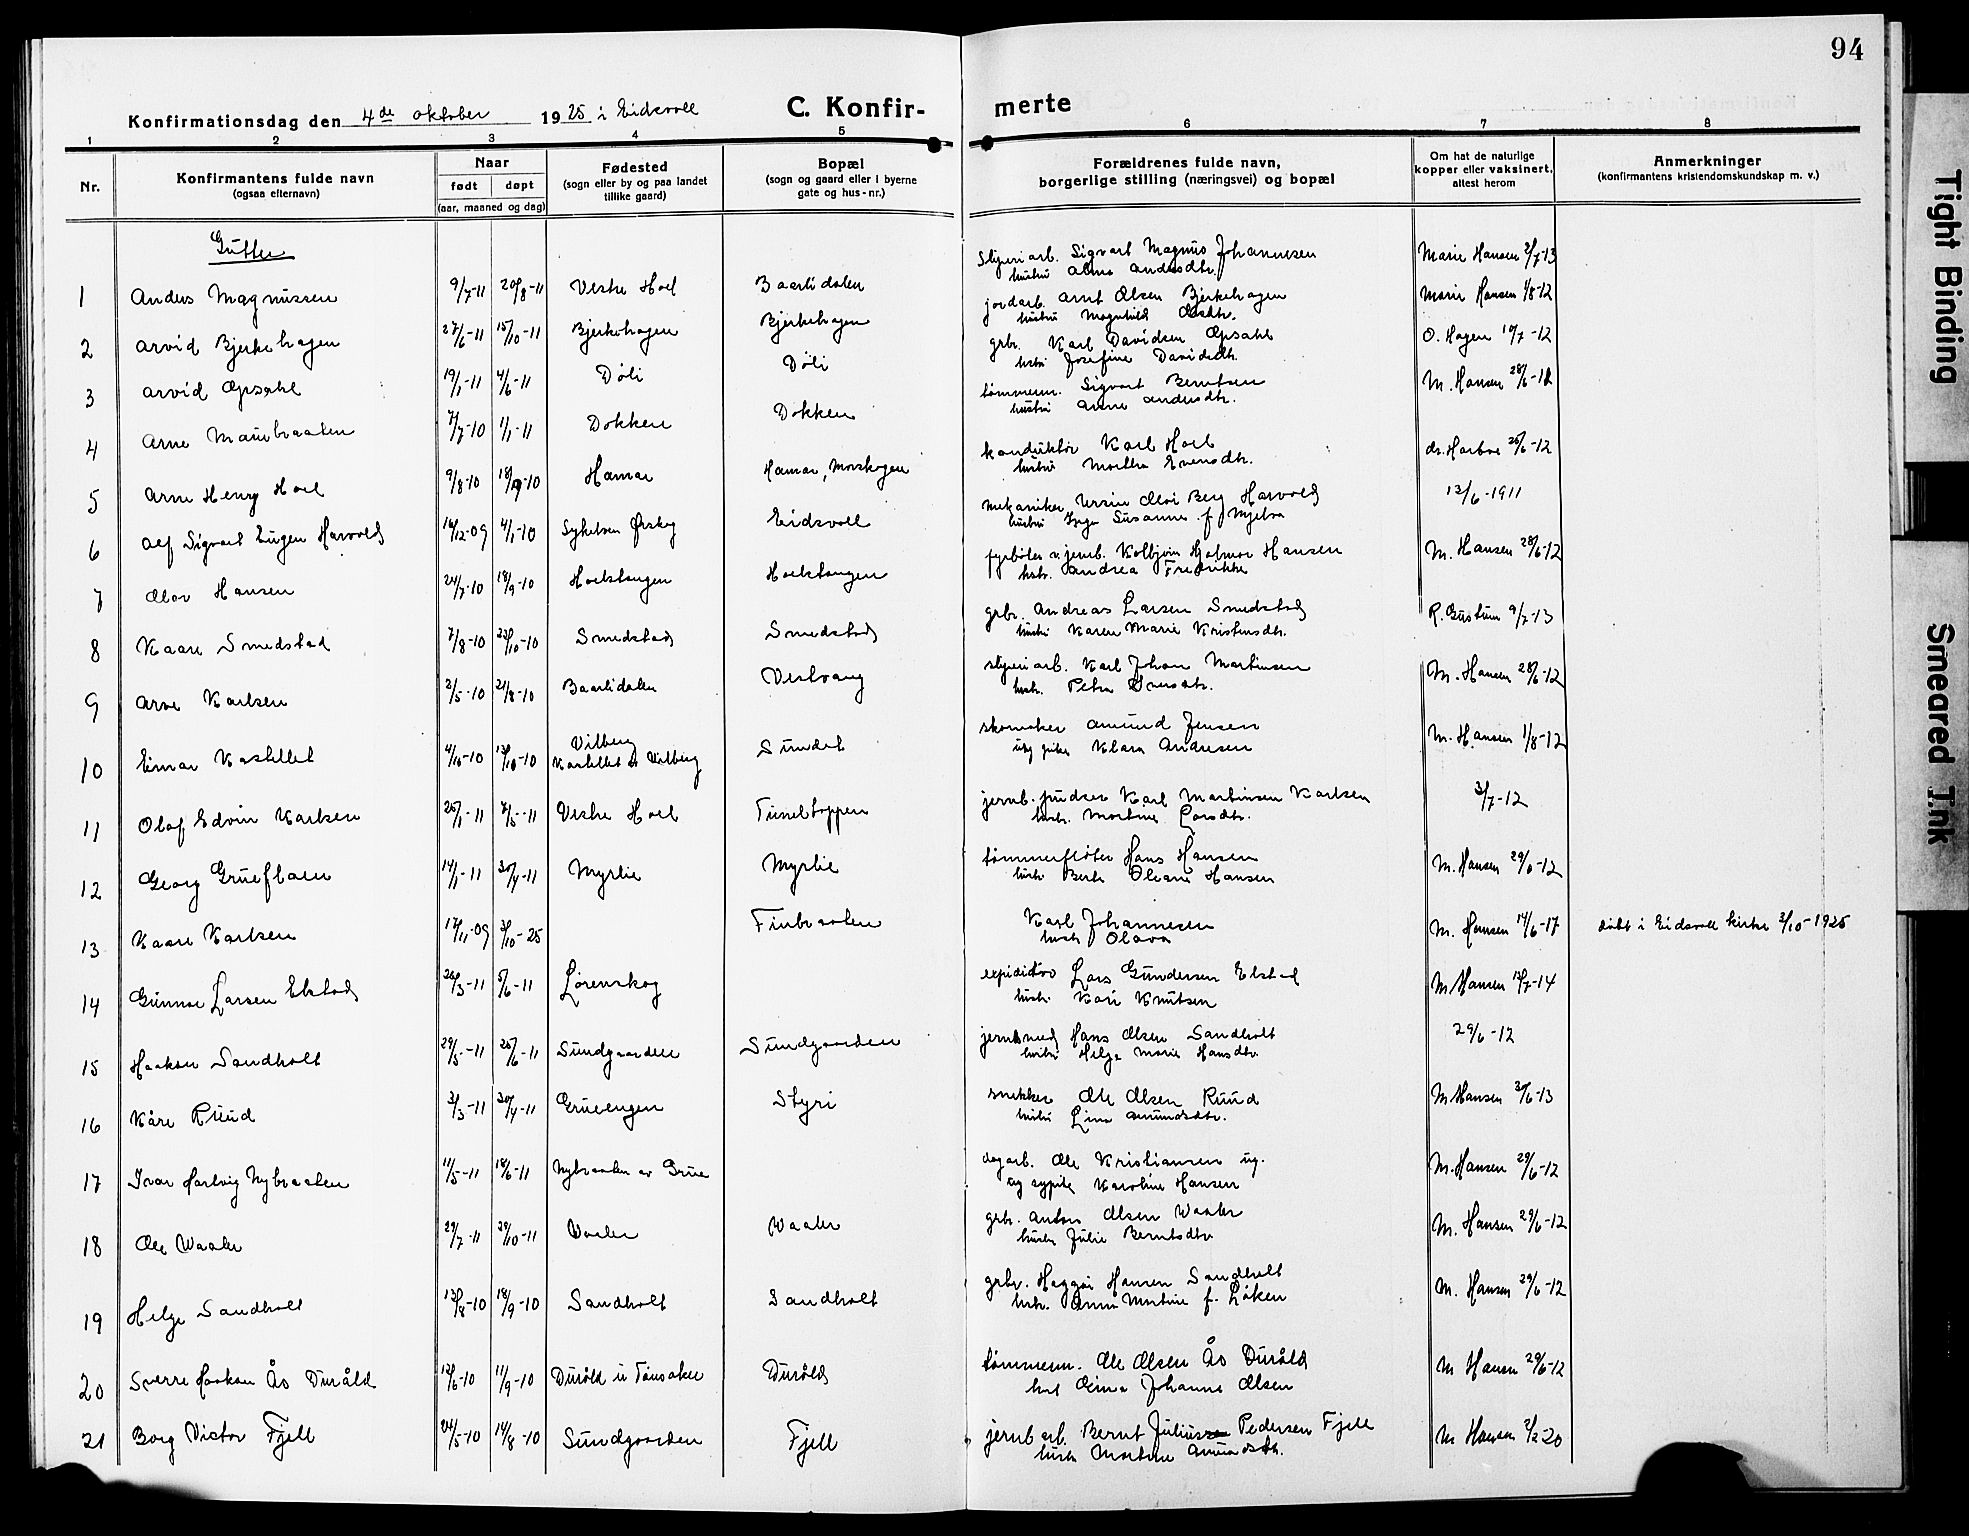 94
Konfirmationsdag den 4de oktober 1925 i Eidsvoll C. Konfir- merte
1 2 3 4 5 6 7 8
Nr.
Konfirmantens fulde navn
(ogsaa efternavn)
Naar
født døpt
(aar, maaned og dag)
Fødested
(sogn eller by og paa landet
tillike gaard)
Bopæl
(sogn og gaard eller i byerne
gate og hus-nr.)
Forældrenes fulde navn,
borgerlige stilling (næringsvei) og bopæl
Om hat de naturlige
kopper eller vaksinert,
attest herom
Anmerkninger
(konfirmantens kristendomskundskap m. v.)
Gutter
1 Anders Magnussen 9/7-11 20/8-11 Vestre Hoel Baarlidalen Sigvart Magnus Johannesen Marie Hansen 2/7-13
hustru Alma Andersdtr.
2 Arvid Bjerkehagen 27/6-11 15/10-11 Bjerkehagen Bjerkehagen jordarb. Arnt Olsen Bjerkehagen Marie Hansen 1/8-12
hustru Magnhild Olsdtr.
3 Arvid Opsahl 19/1-11 4/6-11 Døli Døli grbr. Karl Davidsen Opsahl O. Hagen 10/7-12
hustru Josefine Davidsdtr.
4 Arne 7/7-10 1/1-11 Dokken Dokken tømmerm. Sigvart Berntsen M. Hansen 28/6-12
hustru Anne Andersdtr.
5 Arne Henry Hoel 9/8-10 18/9-10 Hamar Hamar, Morskogen konduktør Karl Hoel dr. Harboe 26/6-12
hustru Martha Evensdtr.
6 Alf Sigvart Eugen Harvold 16/12-09 4/1-10 Eidsvoll mekaniker Berg Harvold 13/6-1911
hustru Inga Susanne f. Mjelva
7 Olav Hansen 24/7-10 18/9-10 Hoelstangen Hoelstangen fyrbøter v. jernb. Kolbjørn Hjalmar Hansen M. Hansen 28/6-12
hstr. Andrea Fredrikke
8 Kaare Smedstad 7/8-10 23/10-10 Smedstad Smedstad grbr. Andreas Larsen Smedstad 9/7-13
hustru Karen Marie Kristensdtr.
9 Arve Karlsen 2/5-10 21/8-10 Baarlidalen Vestvang Karl Johan Martinsen M. Hansen 28/6-12
hstr. Petra
10 Einar Kastellet 4/10-10 Vilberg Sundet skomaker Amund Jensen M. Hansen 1/8-12
Kastellet Vilberg
Klara Andresen
11 Olaf Edvin Karlsen 25/1-11 7/5-11 Vestre Hoel Tuneltoppen Karl Martinsen Karlsen 3/7-12
hustr. Martine Larsdtr.
12 Georg 14/1-11 30/4-11 Myrlie Myrlie tømmerfløter Hans Hansen M. Hansen 29/6-12
hustr. Berte Oleane Hansen
13 Kaare Karlsen 17/11-09 3/10-25 Finbraaten Karl Johannesen M. Hansen 14/6-17 døbt i Eidsvoll kirke 3/10-1925
hustr. Olava
14 Gunnar Larsen Elstad 26/3-11 5/6-11 Lørenskog Lars Gundersen Elstad M. Hansen 17/7-14
hustr. Kari Knutsen
15 Haakon Sandholt 29/5-11 25/6-11 Sundgaarden Sundgaarden Hans Olsen Sandholt 29/6-12
hustru Helga Marie Hansdtr.
16 Kåre Ruud 3/3-11 30/4-11 Gruvengen Styri snekker Ole Olsen Ruud M. Hansen 30/6-13
hustru Lina Amundsdtr.
17 Ivar Hartvig Nybraaten 11/5-11 18/6-11 Nybraaten av Grue dagarb. Ole Kristiansen ug. M. Hansen 29/6-12
og sypike Karoline Hansen
18 Ole Waaler 29/7-11 29/10-11 Vaaler Waaler grbr. Anton Olsen Waaler M. Hansen 29/6-12
hustru Julie Berntsdtr.
19 Helge Sandholt 13/8-10 18/9-10 Sandholt Sandholt grbr. Haggai Hansen Sandholt M. Hansen 29/6-12
hstr. Anna Martine f. Løken
20 Sverre Haakon Ås Duråld 12/6-10 11/9-10 Duråld u Tønsaker Duråld tømmerm. Ole Olsen Ås Duråld M Hansen 29/6-12
Johanne Olsen
21 Borg Victor Fjell 24/5-10 14/8-10 Sundgaarden Fjell jernb arb. Bernt Julius Pedersen Fjell M Hansen 2/2-20
hustr. Martine Amundsdtr.
Tight Binding
Smeared Ink